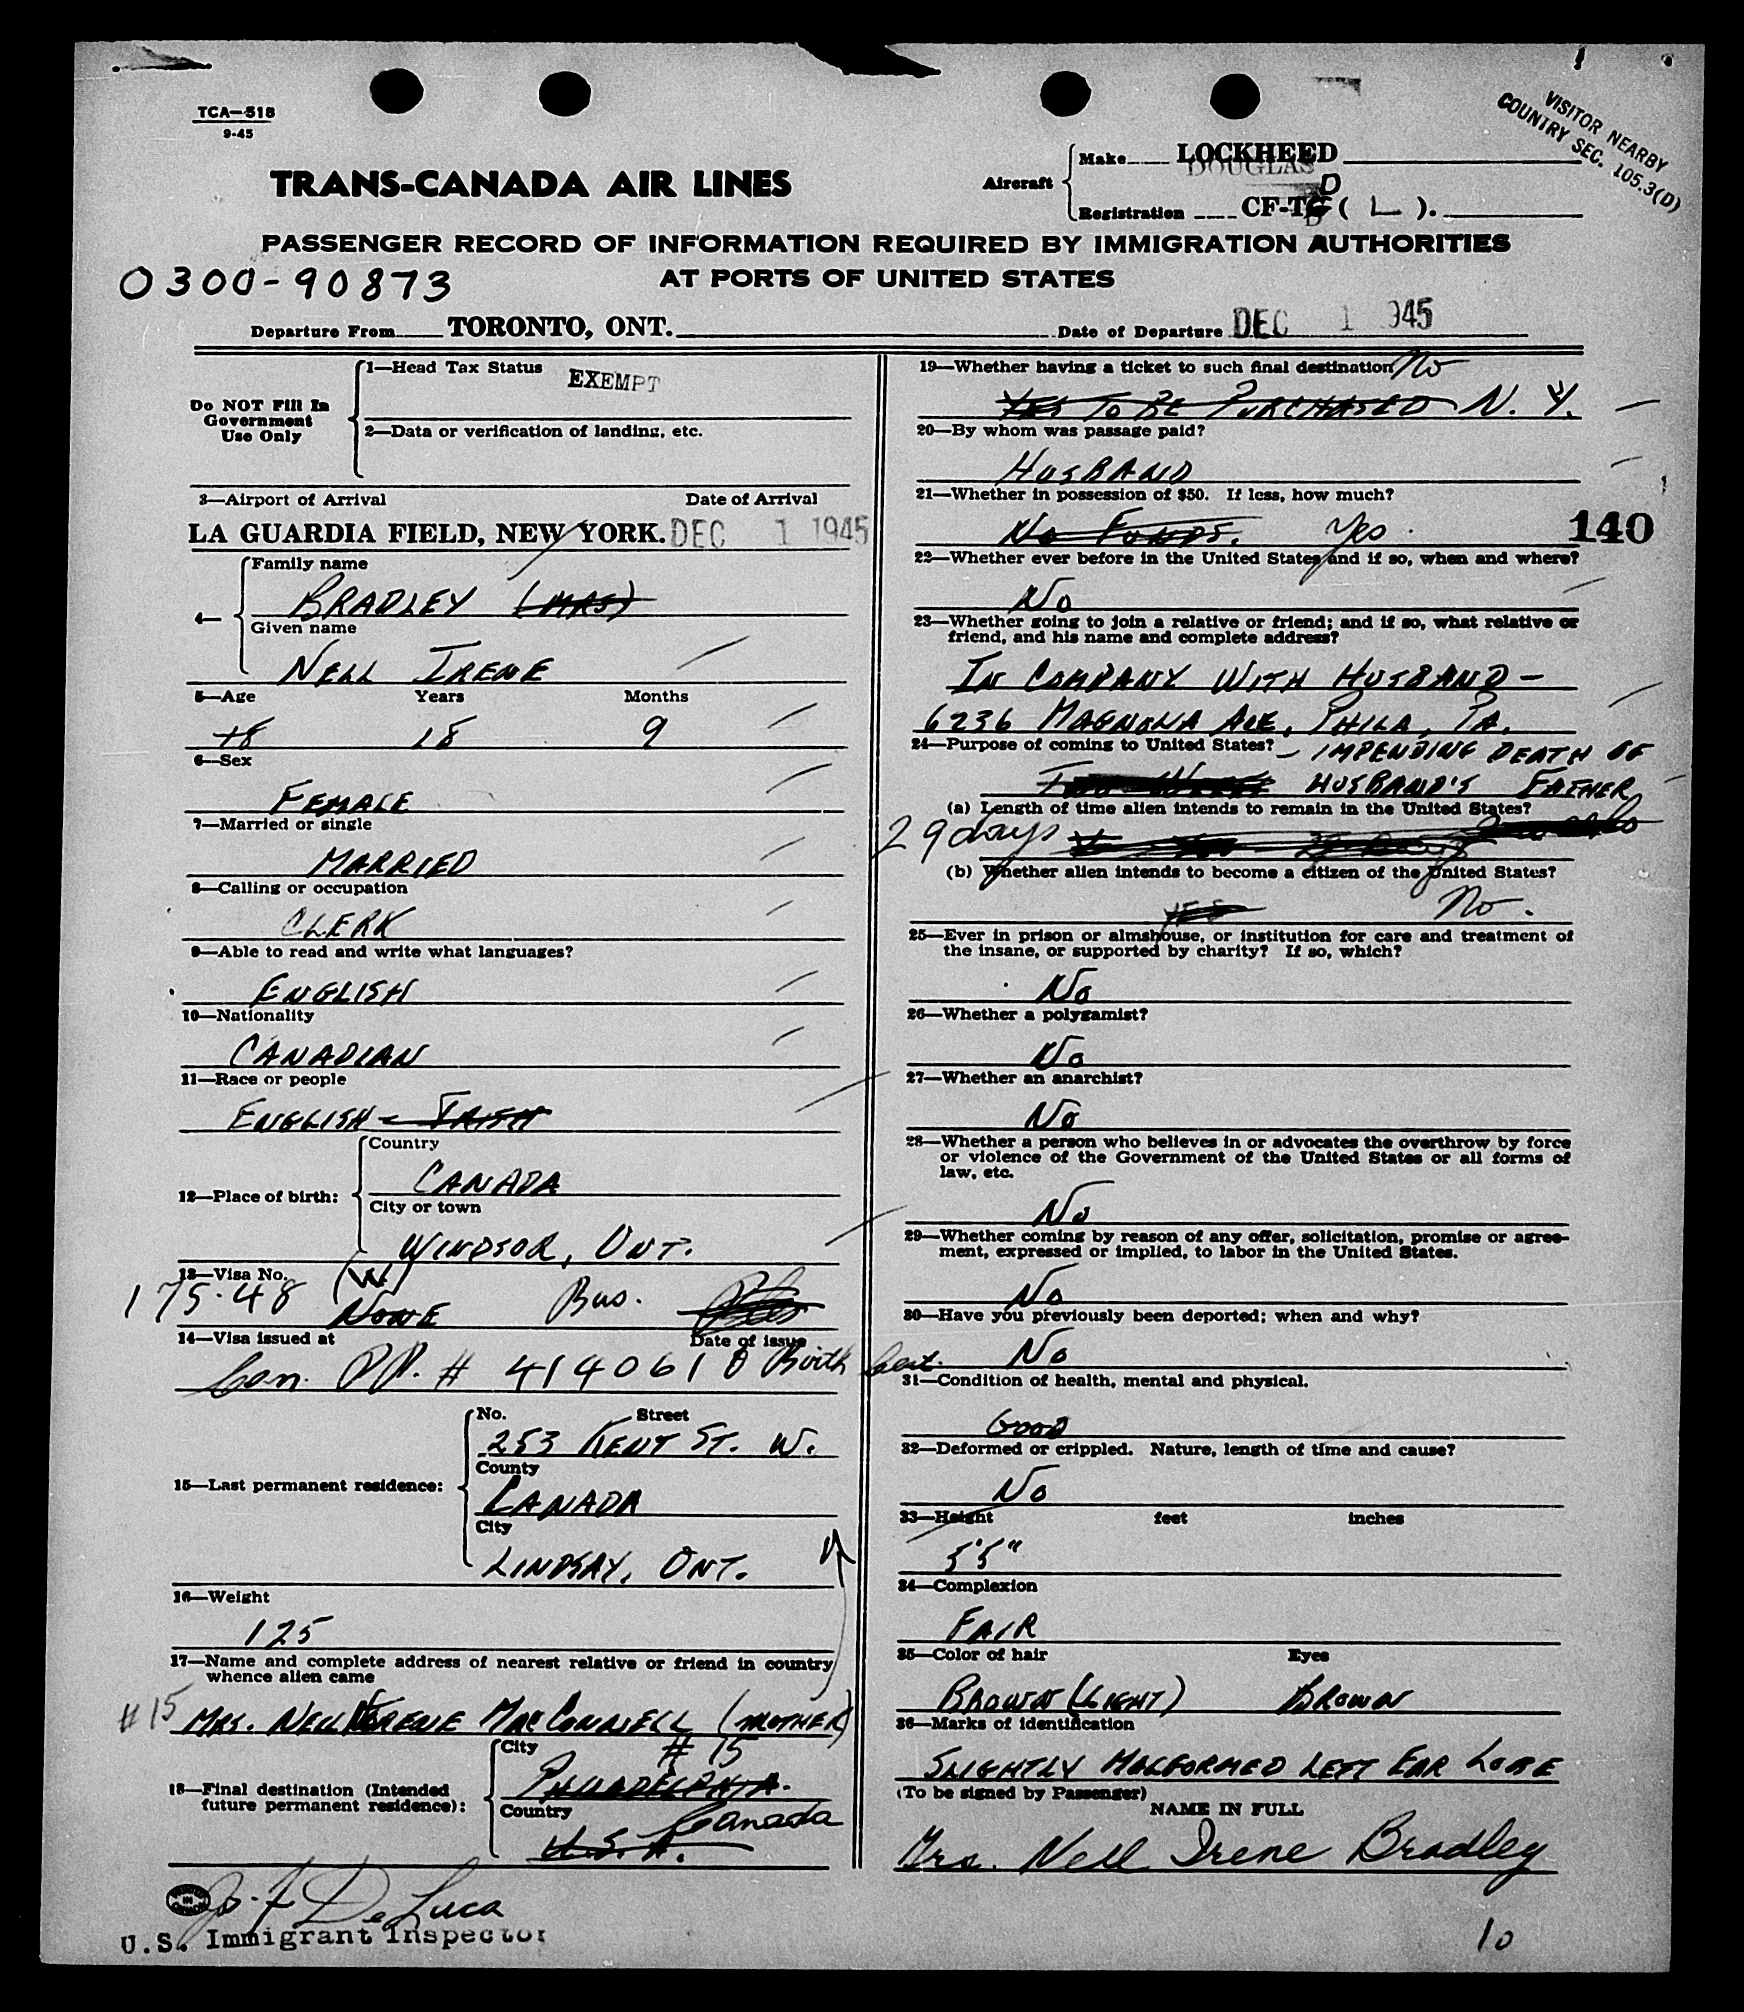 TCA—518
9-45
VISITOR NEARBY
COUNTRY SEC. 105.3(D)
TRANS-CANADA AIR LINES
Aircraft
Make LOCKHEED
DOUGLAS
Registration CF-T ( L ).
PASSENGER RECORD OF INFORMATION REQUIRED BY IMMIGRATION AUTHORITIES
AT PORTS OF UNITED STATES
0300-90873
Departure From TORONTO, ONT. Date of Departure DEC 1 945
Do NOT Fill In
Government
Use Only
1—Head Tax Status EXEMPT
2—Data or verification of landing, etc.
3—Airport of Arrival Date of Arrival
LA GUARDIA FIELD, NEW YORK. DEC 1 1945
4—
Family name
BRADLEY (MRS)
Given name
NELL IRENE
5—Age Years Months
18 18 9
6—Sex
FEMALE
7—Married or single
MARRIED
8—Calling or occupation
CLERK
9—Able to read and write what languages?
ENGLISH
10—Nationality
CANADIAN
11—Race or people
ENGLISH - IRISH
12—Place of birth:
Country
CANADA
City or town
WINDSOR, ONT.
13—Visa No. (W)
175-48 NONE Bus.
14—Visa issued at Date of issue
Can. PP. # 414061 & Birth Cert.
15—Last permanent residence:
No. Street
253 KENT ST. W.
County
CANADA
City
LINDSAY, ONT.
16—Weight
125
17—Name and complete address of nearest relative or friend in country
whence alien came
#15 MRS. NELL IRENE MACCONNELL (MOTHER)
18—Final destination (Intended
future permanent residence):
City # 15
PHILADELPHIA.
Country Canada
U.S.A.
J. F. De Luca
U.S. Immigrant Inspector
19—Whether having a ticket to such final destination No
YES TO BE PURCHASED N.Y.
20—By whom was passage paid?
HUSBAND
21—Whether in possession of $50. If less, how much?
NO FUNDS. Yes.
140
22—Whether ever before in the United States and if so, when and where?
NO
23—Whether going to join a relative or friend; and if so, what relative or
friend, and his name and complete address?
IN COMPANY WITH HUSBAND -
6236 MAGNOLIA AVE, PHILA, PA.
24—Purpose of coming to United States? - IMPENDING DEATH OF
HUSBAND'S FATHER
(a) Length of time alien intends to remain in the United States?
29 days
(b) Whether alien intends to become a citizen of the United States?
YES No.
25—Ever in prison or almshouse, or institution for care and treatment of
the insane, or supported by charity? If so, which?
NO
26—Whether a polygamist?
NO
27—Whether an anarchist?
NO
28—Whether a person who believes in or advocates the overthrow by force
or violence of the Government of the United States or all forms of
law, etc.
NO
29—Whether coming by reason of any offer, solicitation, promise or agree-
ment, expressed or implied, to labor in the United States.
NO
30—Have you previously been deported; when and why?
NO
31—Condition of health, mental and physical.
GOOD
32—Deformed or crippled. Nature, length of time and cause?
NO
33—Height feet inches
5'5"
34—Complexion
FAIR
35—Color of hair Eyes
BROWN (LIGHT) BROWN
36—Marks of identification
SLIGHTLY MALFORMED LEFT EAR LOBE
(To be signed by Passenger)
NAME IN FULL
Mrs. Nell Irene Bradley
10